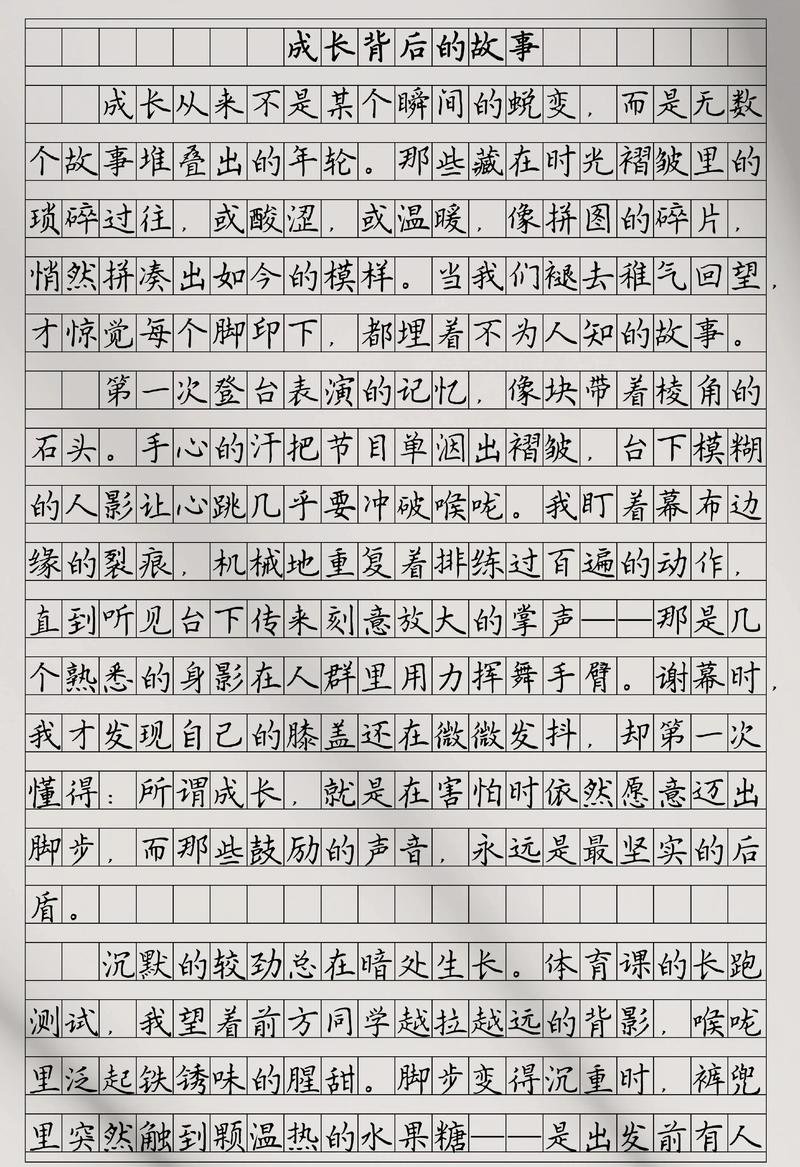 成长背后的故事
成长从来不是某个瞬间的蜕变，而是无数
个故事堆叠出的年轮。那些藏在时光褶皱里的
琐碎过往，或酸涩，或温暖，像拼图的碎片，
悄然拼凑出如今的模样。当我们褪去稚气回望，
才惊觉每个脚印下，都埋着不为人知的故事。
第一次登台表演的记忆，像块带着棱角的
石头。手心的汗把节目单洇出褶皱，台下模糊
的人影让心跳几乎要冲破喉咙。我盯着幕布边
缘的裂痕，机械地重复着排练过百遍的动作，
直到听见台下传来刻意放大的掌声——那是几
个熟悉的身影在人群里用力挥舞手臂。谢幕时，
我才发现自己的膝盖还在微微发抖，却第一次
懂得：所谓成长，就是在害怕时依然愿意迈出
脚步，而那些鼓励的声音，永远是最坚实的后
盾。
沉默的较劲总在暗处生长。体育课的长跑
测试，我望着前方同学越拉越远的背影，喉咙
里泛起铁锈味的腥甜。脚步变得沉重时，裤兜
里突然触到颗温热的水果糖——是出发前有人